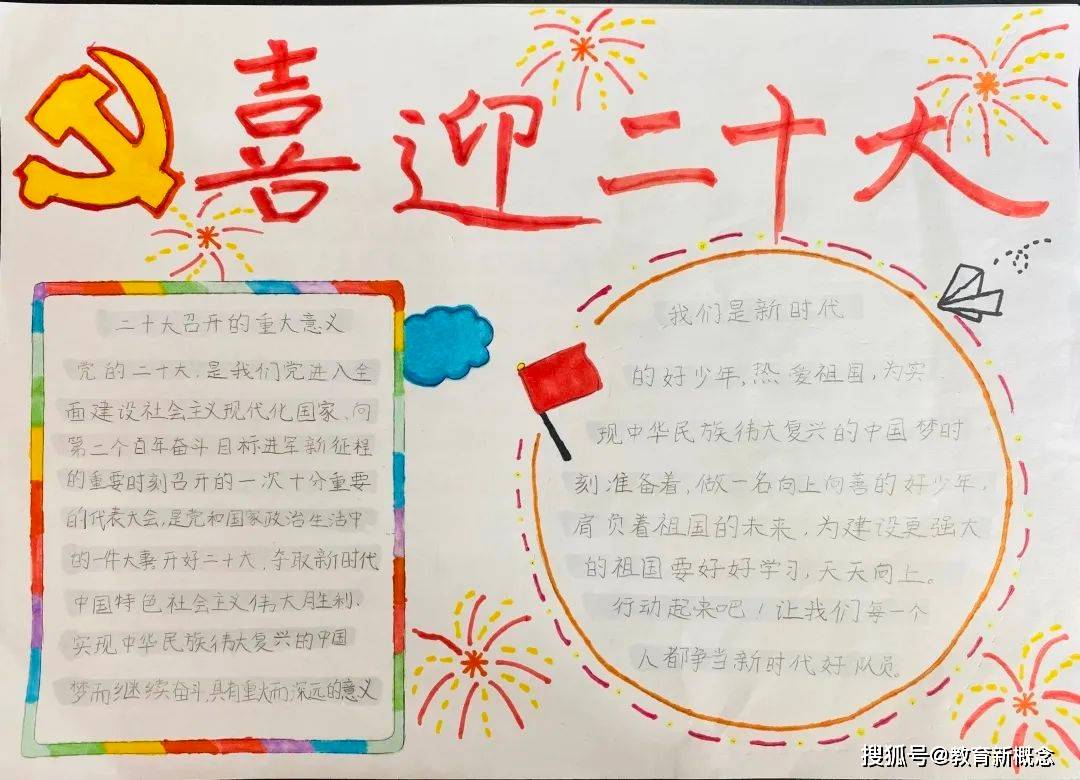 喜迎二十大
二十大召开的重大意义
党的二十大,是我们党进入全
面建设社会主义现代化国家、向
第二个百年奋斗目标进军新征程
的重要时刻召开的一次十分重要
的代表大会,是党和国家政治生活中
的一件大事开好二十大,夺取新时代
中国特色社会主义伟大胜利、
实现中华民族伟大复兴的中国
梦而继续奋斗,具有重大而深远的意义
我们是新时代
的好少年,热爱祖国,为实
现中华民族伟大复兴的中国梦时
刻准备着,做一名向上向善的好少年,
肩负着祖国的未来,为建设更强大
的祖国要好好学习,天天向上。
行动起来吧!让我们每一个
人都争当新时代好队员。
搜狐号@教育新概念